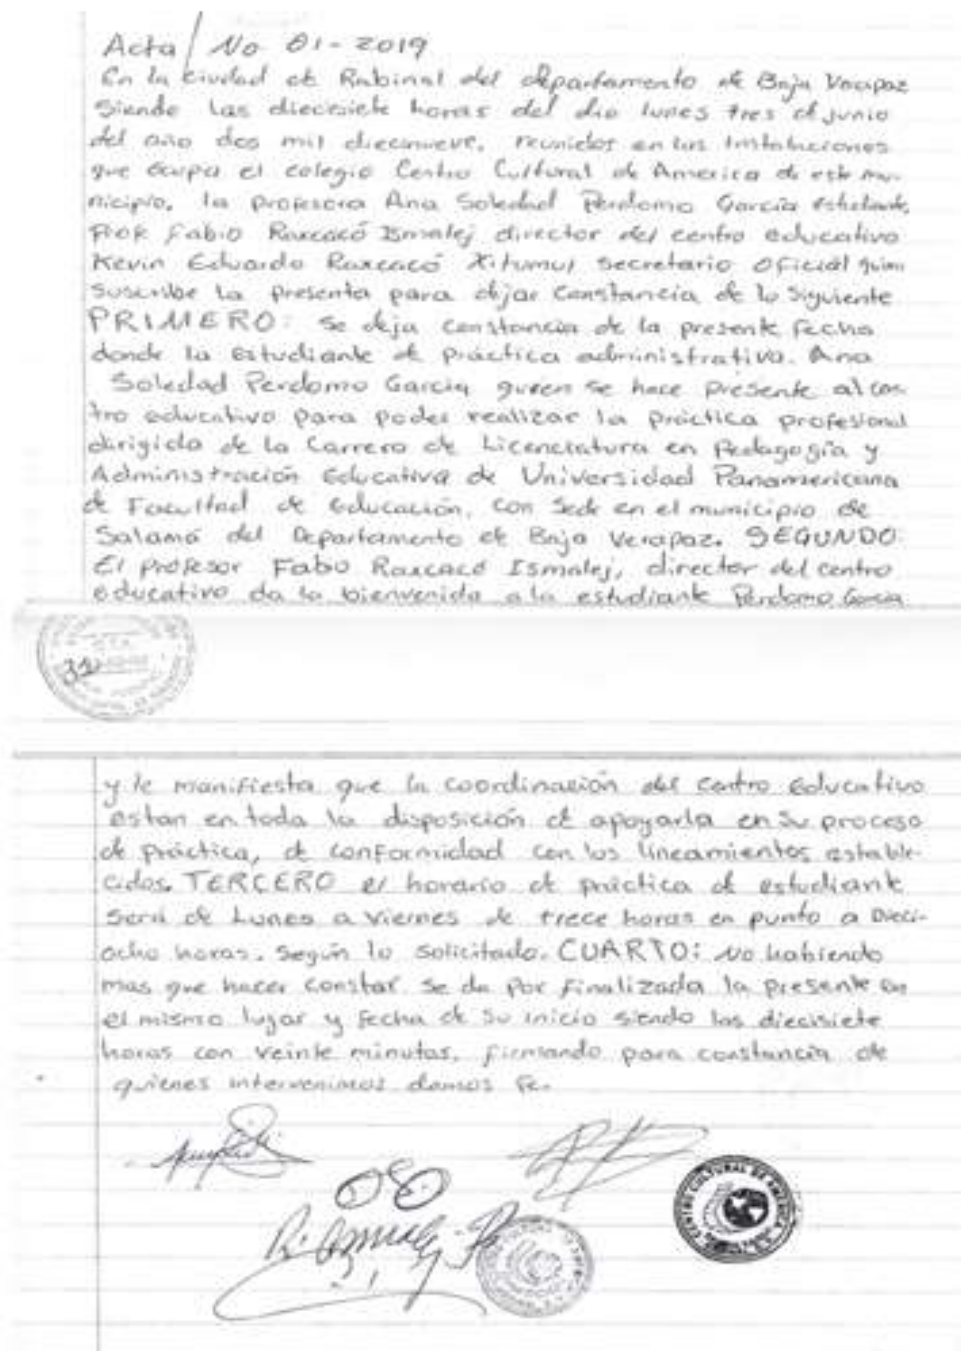 Acta No 01-2019
En la ciudad de Rabinal del departamento de Baja Verapaz
Siendo las diecisiete horas del dia lunes tres de junio
del año dos mil diecinueve, reunidos en las Instalaciones
que ocupa el colegio Centro Cultural de America de este mu-
nicipio, la profesora Ana Soledad Perdomo García estudiante,
Prof Fabio Raxcacó Ismalej director del centro educativo
Kevin Eduardo Raxcacó Xitumul secretario oficial quien
suscribe la presenta para dejar constancia de lo siguiente
PRIMERO: se deja constancia de la presente fecha
donde la estudiante de práctica administrativa. Ana
Soledad Perdomo García quien se hace presente al cen
tro educativo para poder realizar la práctica profesional
dirigida de la Carrera de Licenciatura en Pedagogía y
Administración Educativa de Universidad Panamericana
de Facultad de Educación, con Sede en el municipio de
Salamá del Departamento de Baja Verapaz. SEGUNDO:
El profesor Fabio Raxcacó Ismalej, director del centro
educativo da la bienvenida a la estudiante Perdomo García
31
y le manifiesta que la coordinación del centro educativo
estan en toda la disposición de apoyarla en su proceso
de práctica, de conformidad con los lineamientos estable-
cidos. TERCERO el horario de práctica de estudiante
será de Lunes a Viernes de trece horas en punto a Dieci-
ocho horas. Según lo solicitado. CUARTO: No habiendo
mas que hacer constar se da por finalizada la presente en
el mismo lugar y fecha de su inicio siendo las diecisiete
horas con veinte minutos, firmando para constancia de
quienes intervenimos damos fe.
CENTRO CULTURAL DE AMERICA